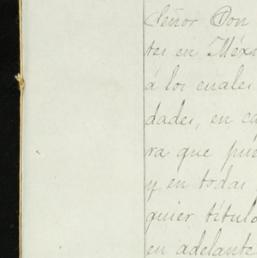 Señor Don
tes en Méxi
á los cuales
dades, en ca
ra que pue
y en todas
quier título
en adelante